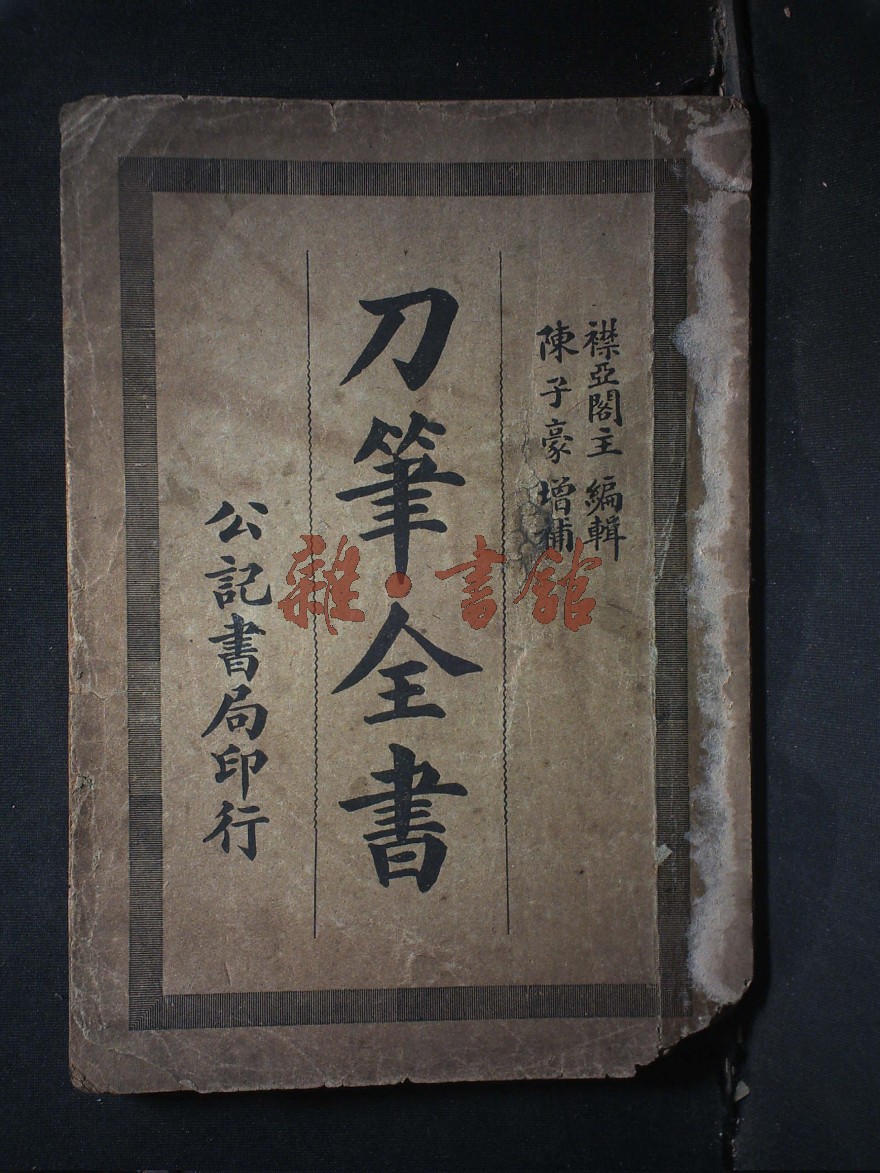 襟亞閣主 編輯
陳子豪 增補
刀筆全書
公記書局印行
雜·書館